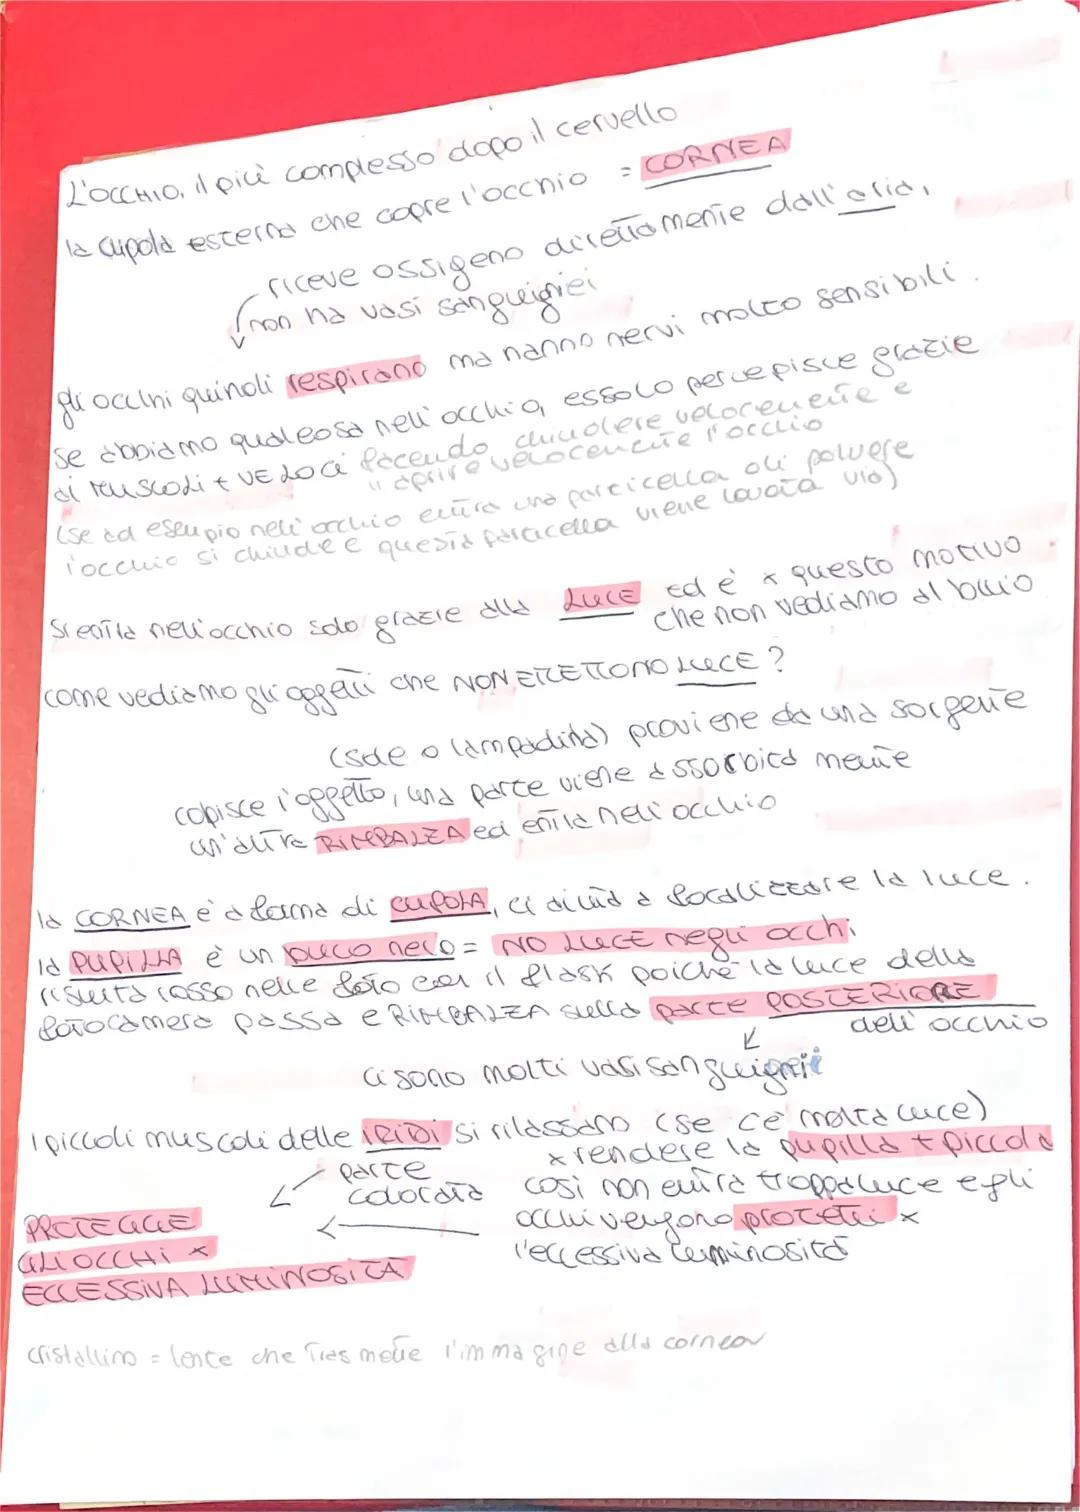 L'OCCHIO, il più complesso dopo il cervello
la cupola esterna che copre l'occhio = CORNEA
riceve ossigeno direttamente dall'aria,
non ha vasi sanguigniei
gli occhi quindi respirano ma hanno nervi molto sensibili.
se abbiamo qualcosa nell'occhio, esso lo percepisce grazie
ai muscoli + VELOCI facendo chiudere velocemente e
" aprire velocemente l'occhio
(se ad esempio nell'occhio entra una particella di polvere
l'occhio si chiude e questa particella viene lavata via)
Si entra nell'occhio solo grazie alla LUCE ed è x questo motivo
che non vediamo al buio
come vediamo gli oggetti che NON EMETTONO LUCE?
(sole o lampadina) proviene da una sorgente
colpisce l'oggetto, una parte viene assorbita mentre
un'altra RIMBALZA ed entra nell'occhio
la CORNEA è a forma di CUPOLA, ci aiuta a focalizzare la luce.
la PUPILLA è un buco nero = NO LUCE negli occhi
risulta rosso nelle foto con il flash poiché la luce della
fotocamera passa e RIMBALZA sulla parte POSTERIORE
dell'occhio
ci sono molti vasi sanguigni
I piccoli muscoli delle IRIDI si rilassano (se c'è molta luce)
x rendere la pupilla + piccola
parte
colorata
così non entra troppa luce e gli
occhi vengono protetti x
l'eccessiva luminosità
PROTEGGE
GLI OCCHI x
ECCESSIVA LUMINOSITÀ
cristallino = lente che trasmette l'immagine alla cornea